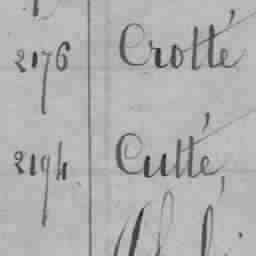 2176 Crotté
2194 Cutté